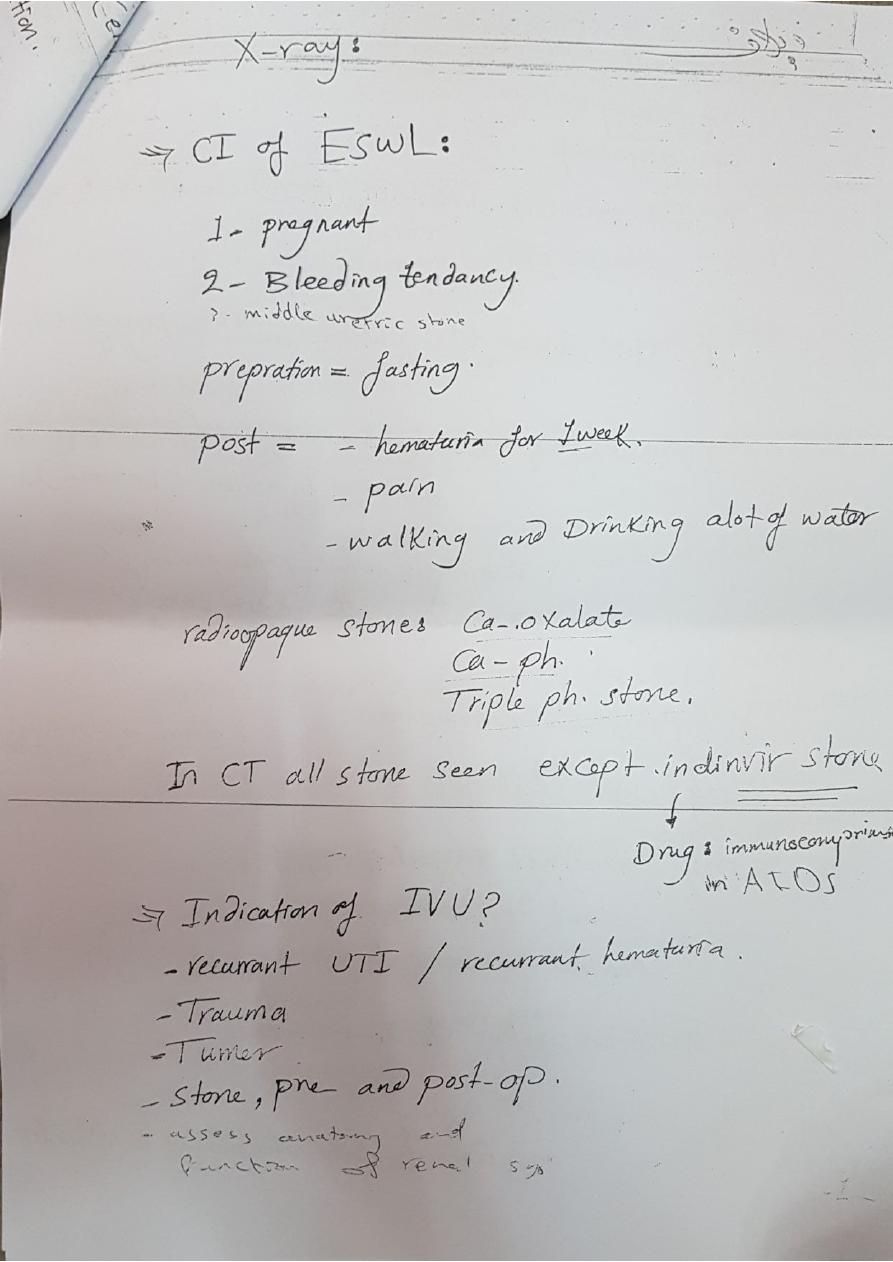 tion.
X-ray:
⇒ CI of ESWL:
1- pregnant
2- Bleeding tendancy.
3- middle uretric stone
prepration = fasting.
post = - hematuria for 1 week.
- pain
- walking and Drinking alot of water
radioopaque stone: Ca-oxalate
Ca-ph.
Triple ph. stone.
In CT all stone seen except indinvir stone
Drug: immunocompriums
in AIDS
⇒ Indication of IVU?
- recurrant UTI / recurrant hematuria.
- Trauma
- Tumer
- Stone, pre and post-op.
- assess anatomy and
function of renal sys
-1-